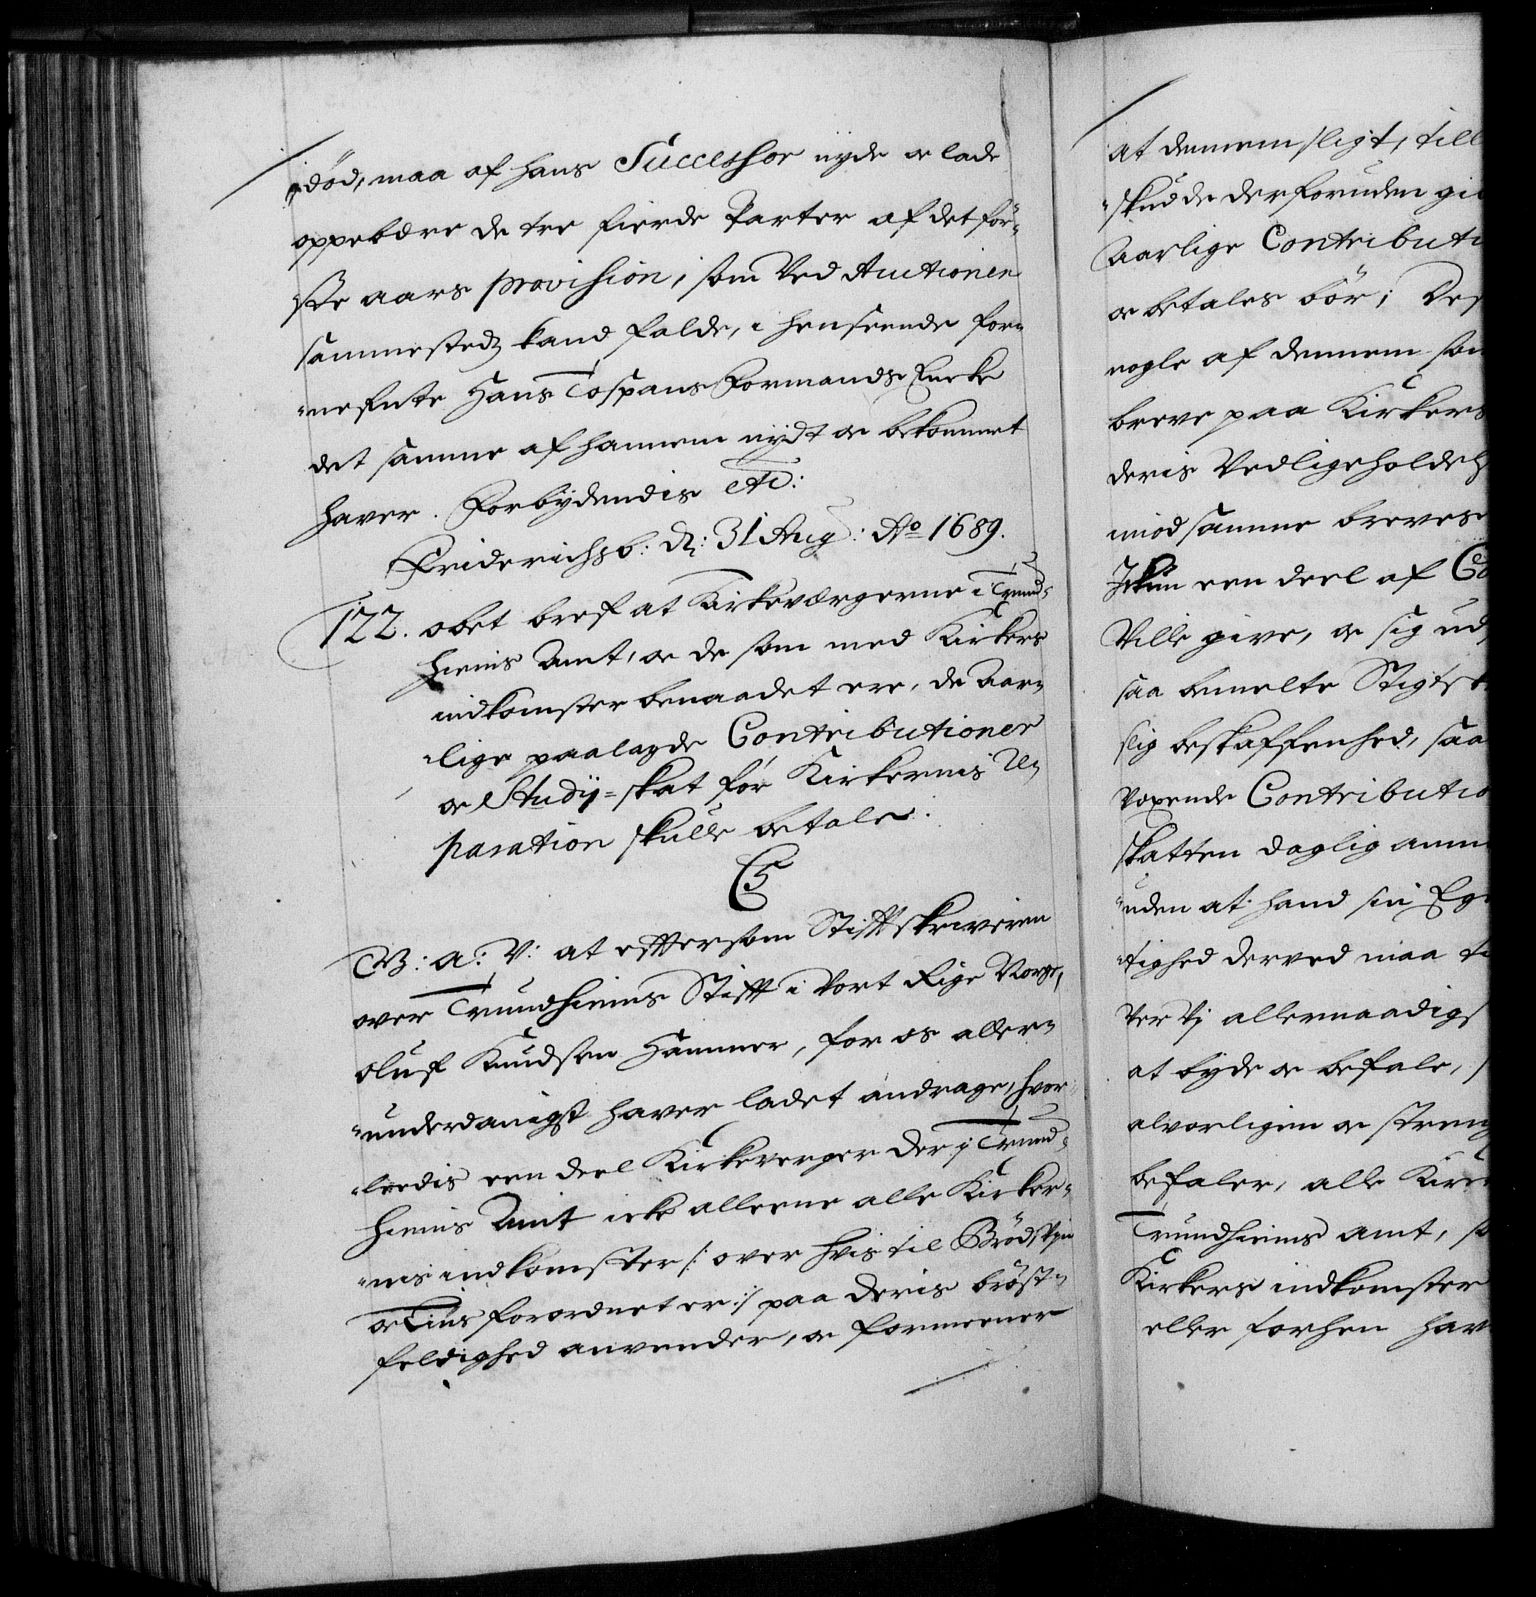 død, maa af hans Successor nyde oc lade
oppebære de tre fierde Parter af det för-
ste aars provision, som Ved Auctionen
sammestedz kand falde, i henseende for-
nefnte Hans Tospans Formands Encke
det samme af hannem nydt oc bekommet
haver. Forbydendis etc:
Friderichsb: d: 31 Aug: Ao 1689.
122. obet bref at Kirkeværgerne i Trund-
hiems Amt, oc de som med Kirkers
indkomster benaadet ere, de Aar-
lige paalagde Contributioner
oc Studij-skat for Kirkernis Re-
paration skulle betale.
C5
G: a: V: at eftersom Stiftskriveren
over Trundhiems Stift i Vort Rige Norge,
Oluf Knudsen Hammer, for os aller-
underdanigst haver ladet andrage, hvor-
leedis een deel Kirkeverger der i Trund-
hiems Amt icke alleene alle Kirker-
nis indkomster /: over hvis til Brød, Vijn
oc Lius forordnet er :/ paa deris bröst-
feldighed anvender, oc formeener
at dennem sligt, till
skudde derforuden gi
Aarlige Contributi
oc betales bör; Des
nogle af dennem som
breve paa Kirkers
deris Vedligeholdels
imod samme breves
Ickun een deel af Co
Ville give, oc sig ud
saa bemelte Stigtsk
slig beskaffenhed, saa
Voxende Contributio
skatten daglig anm
uden at hand sin Eg
tighed derved maa
Ver Vj allernaadigs
at byde oc befale,
alvorligen oc streng
befaler, alle Kirc
Trundhiems amt, s
Kirkers indkomster
eller forhen hav